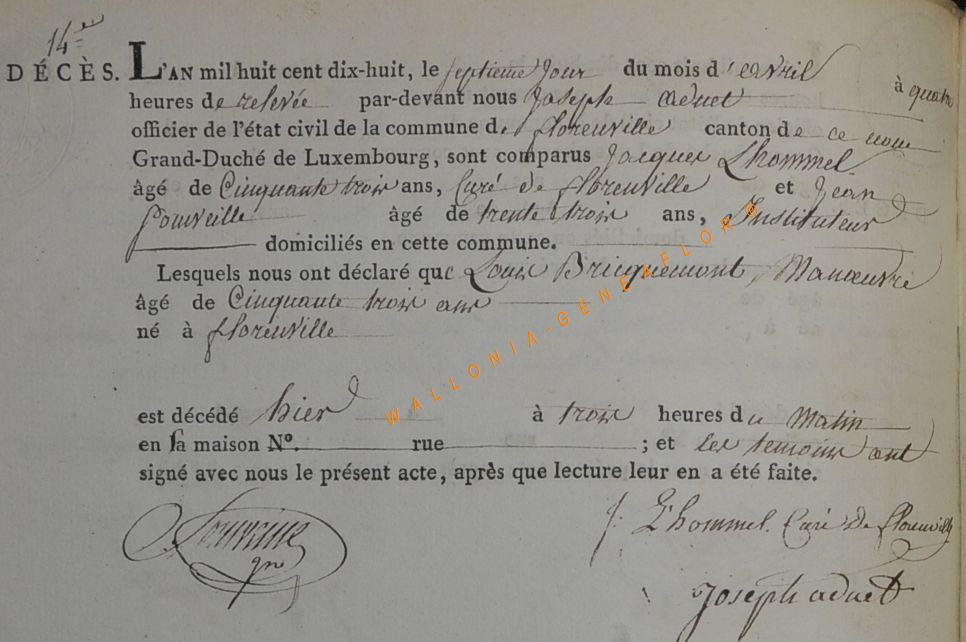 14e
DÉCÈS. L'AN mil huit cent dix-huit, le septieme jour du mois d'avril à quatre
heures de relevée par-devant nous Joseph aduet
officier de l'état civil de la commune de florenville canton de ce nom
Grand-Duché de Luxembourg, sont comparus Jacques Lhommel
âgé de Cinquante trois ans, Curé de florenville et Jean
âgé de trente trois ans, Instituteur
domiciliés en cette commune.
Lesquels nous ont déclaré que Louis Bricquemont, Manœuvre
âgé de Cinquante trois ans
né à florenville
est décédé hier à trois heures du Matin
en sa maison N°. rue ; et les temoins ont
signé avec nous le présent acte, après que lecture leur en a été faite.
J. L'hommel Curé de florenville
Joseph aduet
WALLONIA-GENEAFLOR